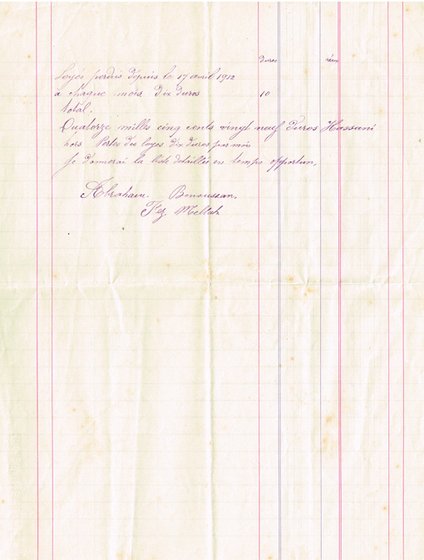 duros réaux
Loyer perdus depuis le 17 avril 1912
a chaque mois dix duros 10
total.
Quatorze mille cinq cents vingt neuf Duros Hassani
hors Pertes des loyes dix duros par mois
je donnerai la liste detaillée en temps opportun.
Abraham. Benoussan.
Fez Mellah